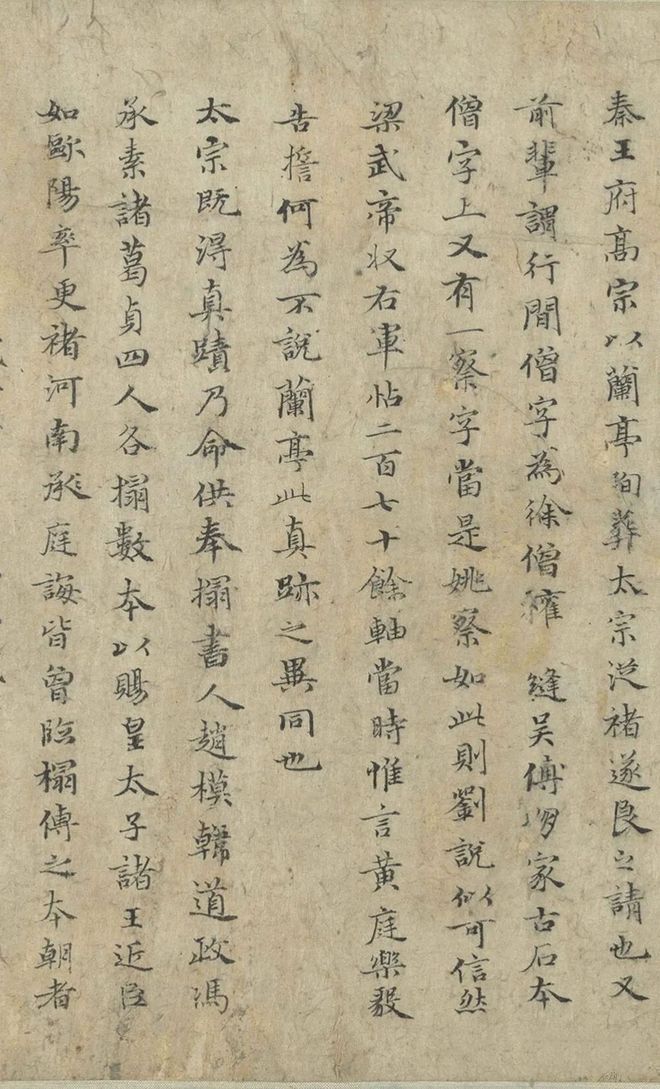 秦王府髙宗以蘭亭殉葬太宗従褚遂良之請也又
前輩謂行間僧字為徐僧權 縫吳傅朋家古石本
僧字上又有一察字當是姚察如此則劉說似可信然
梁武帝收右軍帖二百七十餘軸當時惟言黄庭樂毅
告誓何為不說蘭亭此真跡之異同也
太宗既得真蹟乃命供奉搨書人趙模韓道政馮
承素諸葛貞四人各搨數本以賜皇太子諸王近臣
如歐陽率更褚河南承庭誨皆曾臨榻傳之本朝者